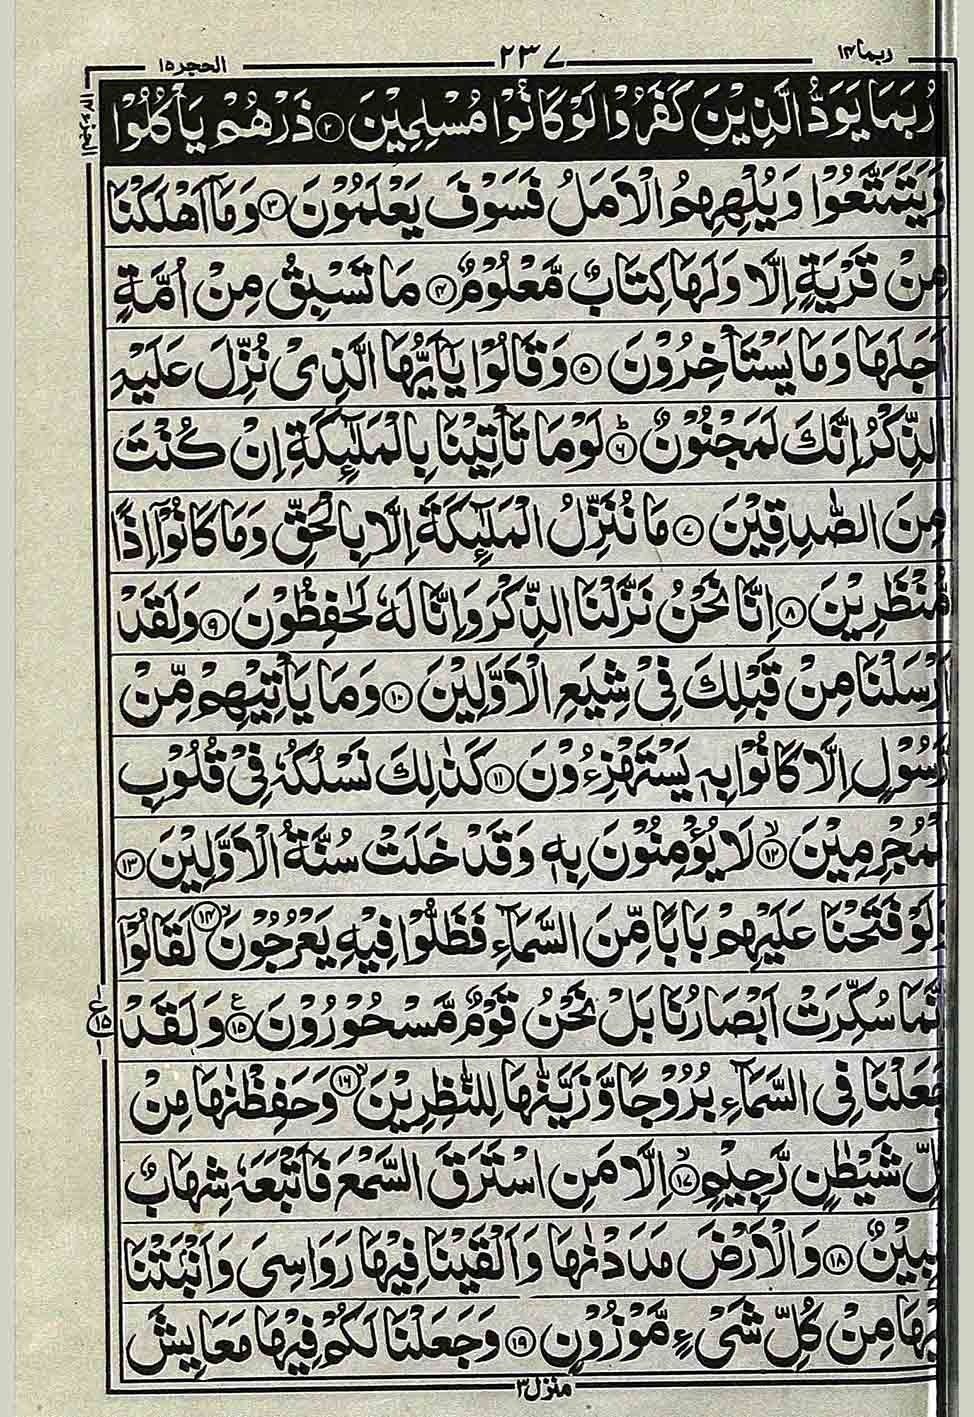 ربما ۱۴
۲۳۷
الحجر ۱۵
رُبَمَا يَوَدُّ الَّذِيْنَ كَفَرُوْا لَوْ كَانُوْا مُسْلِمِيْنَ ۝۲ ذَرْهُمْ يَاْكُلُوْا
وَيَتَمَتَّعُوْا وَيُلْهِهِمُ الْاَمَلُ فَسَوْفَ يَعْلَمُوْنَ ۝۳ وَمَاۤ اَهْلَكْنَا
مِنْ قَرْيَةٍ اِلَّا وَلَهَا كِتَابٌ مَّعْلُوْمٌ ۝۴ مَا تَسْبِقُ مِنْ اُمَّةٍ
اَجَلَهَا وَمَا يَسْتَاْخِرُوْنَ ۝۵ وَقَالُوْا يٰۤاَيُّهَا الَّذِىْ نُزِّلَ عَلَيْهِ
الذِّكْرُ اِنَّكَ لَمَجْنُوْنٌ ۝۶ؕ لَوْمَا تَاْتِيْنَا بِالْمَلٰٓئِكَةِ اِنْ كُنْتَ
مِنَ الصّٰدِقِيْنَ ۝۷ مَا نُنَزِّلُ الْمَلٰٓئِكَةَ اِلَّا بِالْحَقِّ وَمَا كَانُوْۤا اِذًا
مُّنْظَرِيْنَ ۝۸ اِنَّا نَحْنُ نَزَّلْنَا الذِّكْرَ وَاِنَّا لَهٗ لَحٰفِظُوْنَ ۝۹ وَلَقَدْ
اَرْسَلْنَا مِنْ قَبْلِكَ فِىْ شِيَعِ الْاَوَّلِيْنَ ۝۱۰ وَمَا يَاْتِيْهِمْ مِّنْ
رَّسُوْلٍ اِلَّا كَانُوْا بِهٖ يَسْتَهْزِءُوْنَ ۝۱۱ كَذٰلِكَ نَسْلُكُهٗ فِىْ قُلُوْبِ
الْمُجْرِمِيْنَ ۝۱۲ۙ لَا يُؤْمِنُوْنَ بِهٖ وَقَدْ خَلَتْ سُنَّةُ الْاَوَّلِيْنَ ۝۱۳
وَلَوْ فَتَحْنَا عَلَيْهِمْ بَابًا مِّنَ السَّمَآءِ فَظَلُّوْا فِيْهِ يَعْرُجُوْنَ ۝۱۴ۙ لَقَالُوْۤا
اِنَّمَا سُكِّرَتْ اَبْصَارُنَا بَلْ نَحْنُ قَوْمٌ مَّسْحُوْرُوْنَ ۝۱۵ع وَلَقَدْ
ع ۱۵
جَعَلْنَا فِى السَّمَآءِ بُرُوْجًا وَّزَيَّنّٰهَا لِلنّٰظِرِيْنَ ۝۱۶ۙ وَحَفِظْنٰهَا مِنْ
كُلِّ شَيْطٰنٍ رَّجِيْمٍ ۝۱۷ۙ اِلَّا مَنِ اسْتَرَقَ السَّمْعَ فَاَتْبَعَهٗ شِهَابٌ
مُّبِيْنٌ ۝۱۸ وَالْاَرْضَ مَدَدْنٰهَا وَاَلْقَيْنَا فِيْهَا رَوَاسِىَ وَاَنْۢبَتْنَا
فِيْهَا مِنْ كُلِّ شَىْءٍ مَّوْزُوْنٍ ۝۱۹ وَجَعَلْنَا لَكُمْ فِيْهَا مَعَايِشَ
منزل ۳